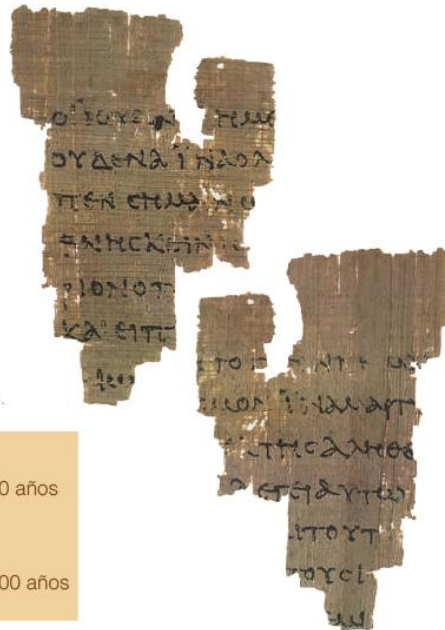 ΟΙ ΙΟΥΔΑΙ ΗΜΕ
ΟΥΔΕΝΑ ΪΝΑ Ο Λ
ΠΕΝ ϹΗΜΑΙΝΩ
ΘΝΗϹΚΕΙΝ
ΡΙΟΝ Ο Π
ΚΑΙ ΕΙΠ
ΤΟ
ϹΜΟΝ ΪΝΑ ΜΑΡΤ
ΤΗϹ ΑΛΗΘΕ
ΛΕΓΕΙ ΑΥΤΩ
ΤΟΥΤ
ΤΟΥϹ Ι
0 años
00 años